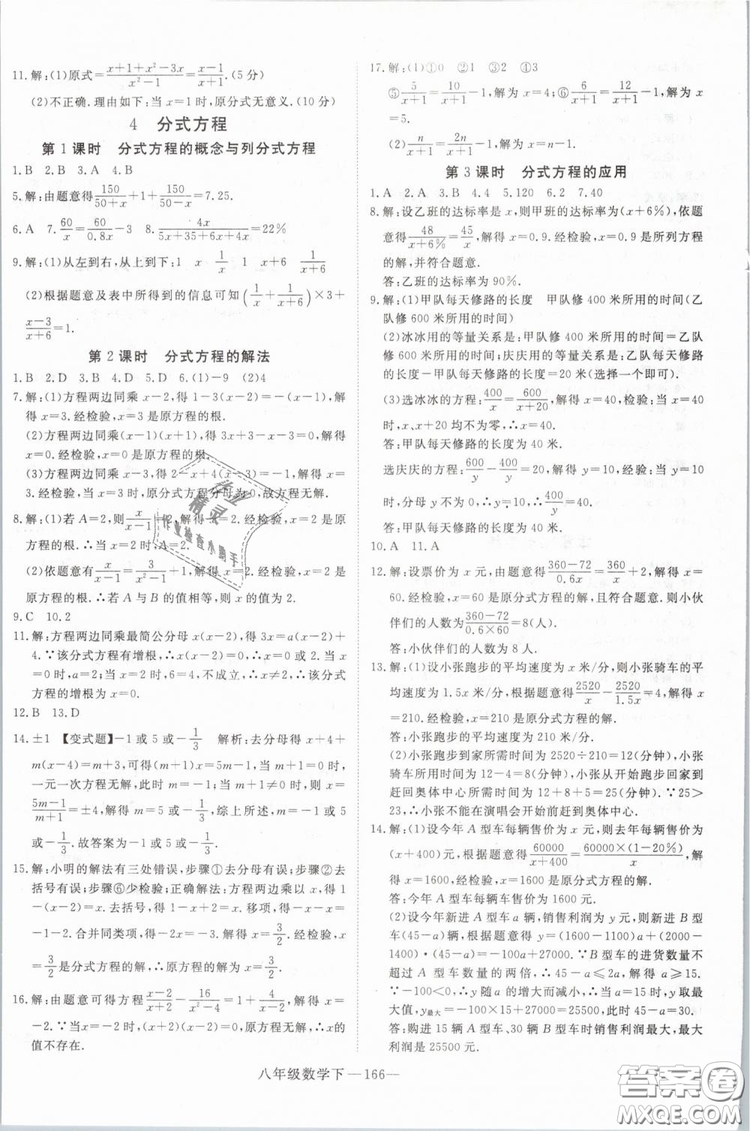 11.解:(1)原式=(x+1+x²-3x)/(x²-1)=(x-1)/(x+1).(5分)
(2)不正确.理由如下:当x=1时,原分式无意义.(10分)
4 分式方程
第1课时 分式方程的概念与列分式方程
1.B 2.B 3.A 4.B
5.解:由题意得150/(50+x)+1+150/(50-x)=7.25.
6.A 7.60/x=60/(0.8x)-3 8.4x/(5x+35+6x+4x)=22%
9.解:(1)从左到右,从上到下:1 x 1/x 1/(x+6) 1
(2)根据题意及表中所得到的信息可知(1/x+1/(x+6))×3+
(x-3)/(x+6)=1.
第2课时 分式方程的解法
1.B 2.D 3.B 4.D 5.D 6.(1)-9 (2)4
7.解:(1)方程两边同乘(x-2),得1-3(x-2)=-(x-1),解
得x=3.经检验,x=3是原方程的根.
(2)方程两边同乘(x-1)(x+1),得(x+1)-2(x-1)=0,解
得x=3.经检验,x=3是原方程的根.
(3)方程两边同乘x-3,得2-x-4(x-3)=-1,解得x=3.
经检验,当x=3时,原方程的分母为0,故方程无解.
8.解:(1)若A=2,则x/(x-1)=2,解得x=2.经检验,x=2是原
方程的根.
作业
精灵
作业检查小助手
9.C 10.2
11.解:方程两边同乘最简公分母x(x-2),得3x=a(x-2)+
4.∵该分式方程有增根,∴x(x-2)=0,∴x=0或2.当x
=0时,a=2;当x=2时,6=4,不成立,∴x=0,∴分式
方程的增根为x=0.
12.B 13.D
14.±1 【变式题】-1或5或-1/3 解析:去分母得x+4+
m(x-4)=m+3,可得(m+1)x=5m-1,当m+1=0时,
一元一次方程无解,此时m=-1;当m+1≠0时,x=
(5m-1)/(m+1)=±4,解得m=5或-1/3,综上所述,m=-1或5
或-1/3.故答案为-1或5或-1/3.
15.解:小明的解法有三处错误,步骤①去分母有误;步骤②去
括号有误;步骤⑥少检验;正确解法:方程两边乘以x,得1
-(x-2)=x.去括号,得1-x+2=x.移项,得-x-x=
-1-2.合并同类项,得-2x=-3.解得x=3/2.经检验,x
=3/2是分式方程的解,∴原方程的解为x=3/2.
16.解:由题意可得方程(x-2)/(x+2)-16/(x²-4)+1=0,解得x
=-2.∵当x=-2时,(x+2)(x-2)=0,∴原方程无解,∴x的
值不存在.
17.解:(1)①0 ②1 ③2 ④3
⑤5/(x+1)=10/(x+1)-1,解为x=4;⑥6/(x+1)=12/(x+1)-1,解为x
=5.
(2)n/(x+1)=2n/(x+1)-1,解为x=n-1.
第3课时 分式方程的应用
1.A 2.A 3.B 4.4 5.120 6.2 7.40
8.解:设乙班的达标率是x,则甲班的达标率为(x+6%),依题
意得48/(x+6%)=45/x,解得x=0.9.经检验,x=0.9是所列方程
的解,并符合题意.
答:乙班的达标率为90%.
9.解:(1)甲队每天修路的长度 甲队修400米所用的时间(乙
队修600米所用的时间)
(2)冰冰用的等量关系是:甲队修路400米所用时间=乙队
修路600米所用时间;庆庆用的等量关系是:乙队每天修路
的长度-甲队每天修路的长度=20米(选择一个即可)
(3)选冰冰的方程:400/x=600/(x+20),解得x=40.经检验,当x=40
时,x,x+20均不为零,∴x=40.
答:甲队每天修路的长度为40米.
选庆庆的方程:600/y-400/y=20,解得y=10.经检验,当y=10
时,分母y不为0,∴y=10,∴400/y=40.
答:甲队每天修路的长度为40米.
10.A 11.A
12.解:设票价为x元,由题意得(360-72)/(0.6x)=360/x+2,解得x=
60.经检验,x=60是原分式方程的解,且符合题意.则小伙
伴们的人数为(360-72)/(0.6×60)=8(人).
答:小伙伴们的人数为8人.
13.解:(1)设小张跑步的平均速度为x米/分,则小张骑车的平
均速度为1.5x米/分,根据题意得2520/x-2520/(1.5x)=4,解得x
=210.经检验,x=210是原分式方程的解.
答:小张跑步的平均速度为210米/分.
(2)小张跑步到家所需时间为2520÷210=12(分钟),小张
骑车所用时间为12-4=8(分钟),小张从开始跑步回家到
赶回奥体中心所需时间为12+8+5=25(分钟).∵25>
23,∴小张不能在演唱会开始前赶到奥体中心.
14.解:(1)设今年A型车每辆售价为x元,则去年每辆售价为
(x+400)元,根据题意得60000/(x+400)=60000×(1-20%)/x,解得
x=1600,经检验,x=1600是原分式方程的解.
答:今年A型车每辆车售价为1600元.
(2)设今年新进A型车a辆,销售利润为y元,则新进B型
车(45-a)辆,根据题意得y=(1600-1100)a+(2000-
1400)·(45-a)=-100a+27000.∵B型车的进货数量不
超过A型车数量的两倍,∴45-a≤2a,解得a≥15.
∵-100<0,∴y随a的增大而减小,∴当a=15时,y取最
大值,y最大=-100×15+27000=25500,此时45-a=30.
答:购进15辆A型车、30辆B型车时销售利润最大,最大
利润是25500元.
八年级数学下—166—
答案圈
MXQE.COM